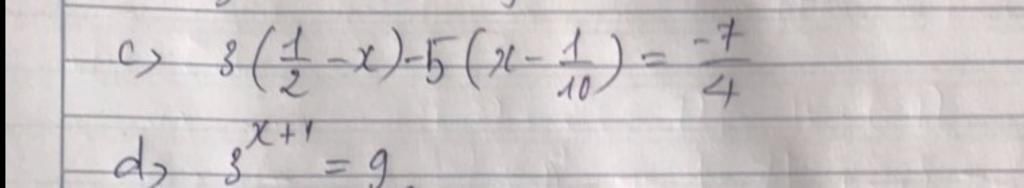 c) 3(1/2 - x) - 5(x - 1/10) = -7/4
d) 3^(x+1) = 9